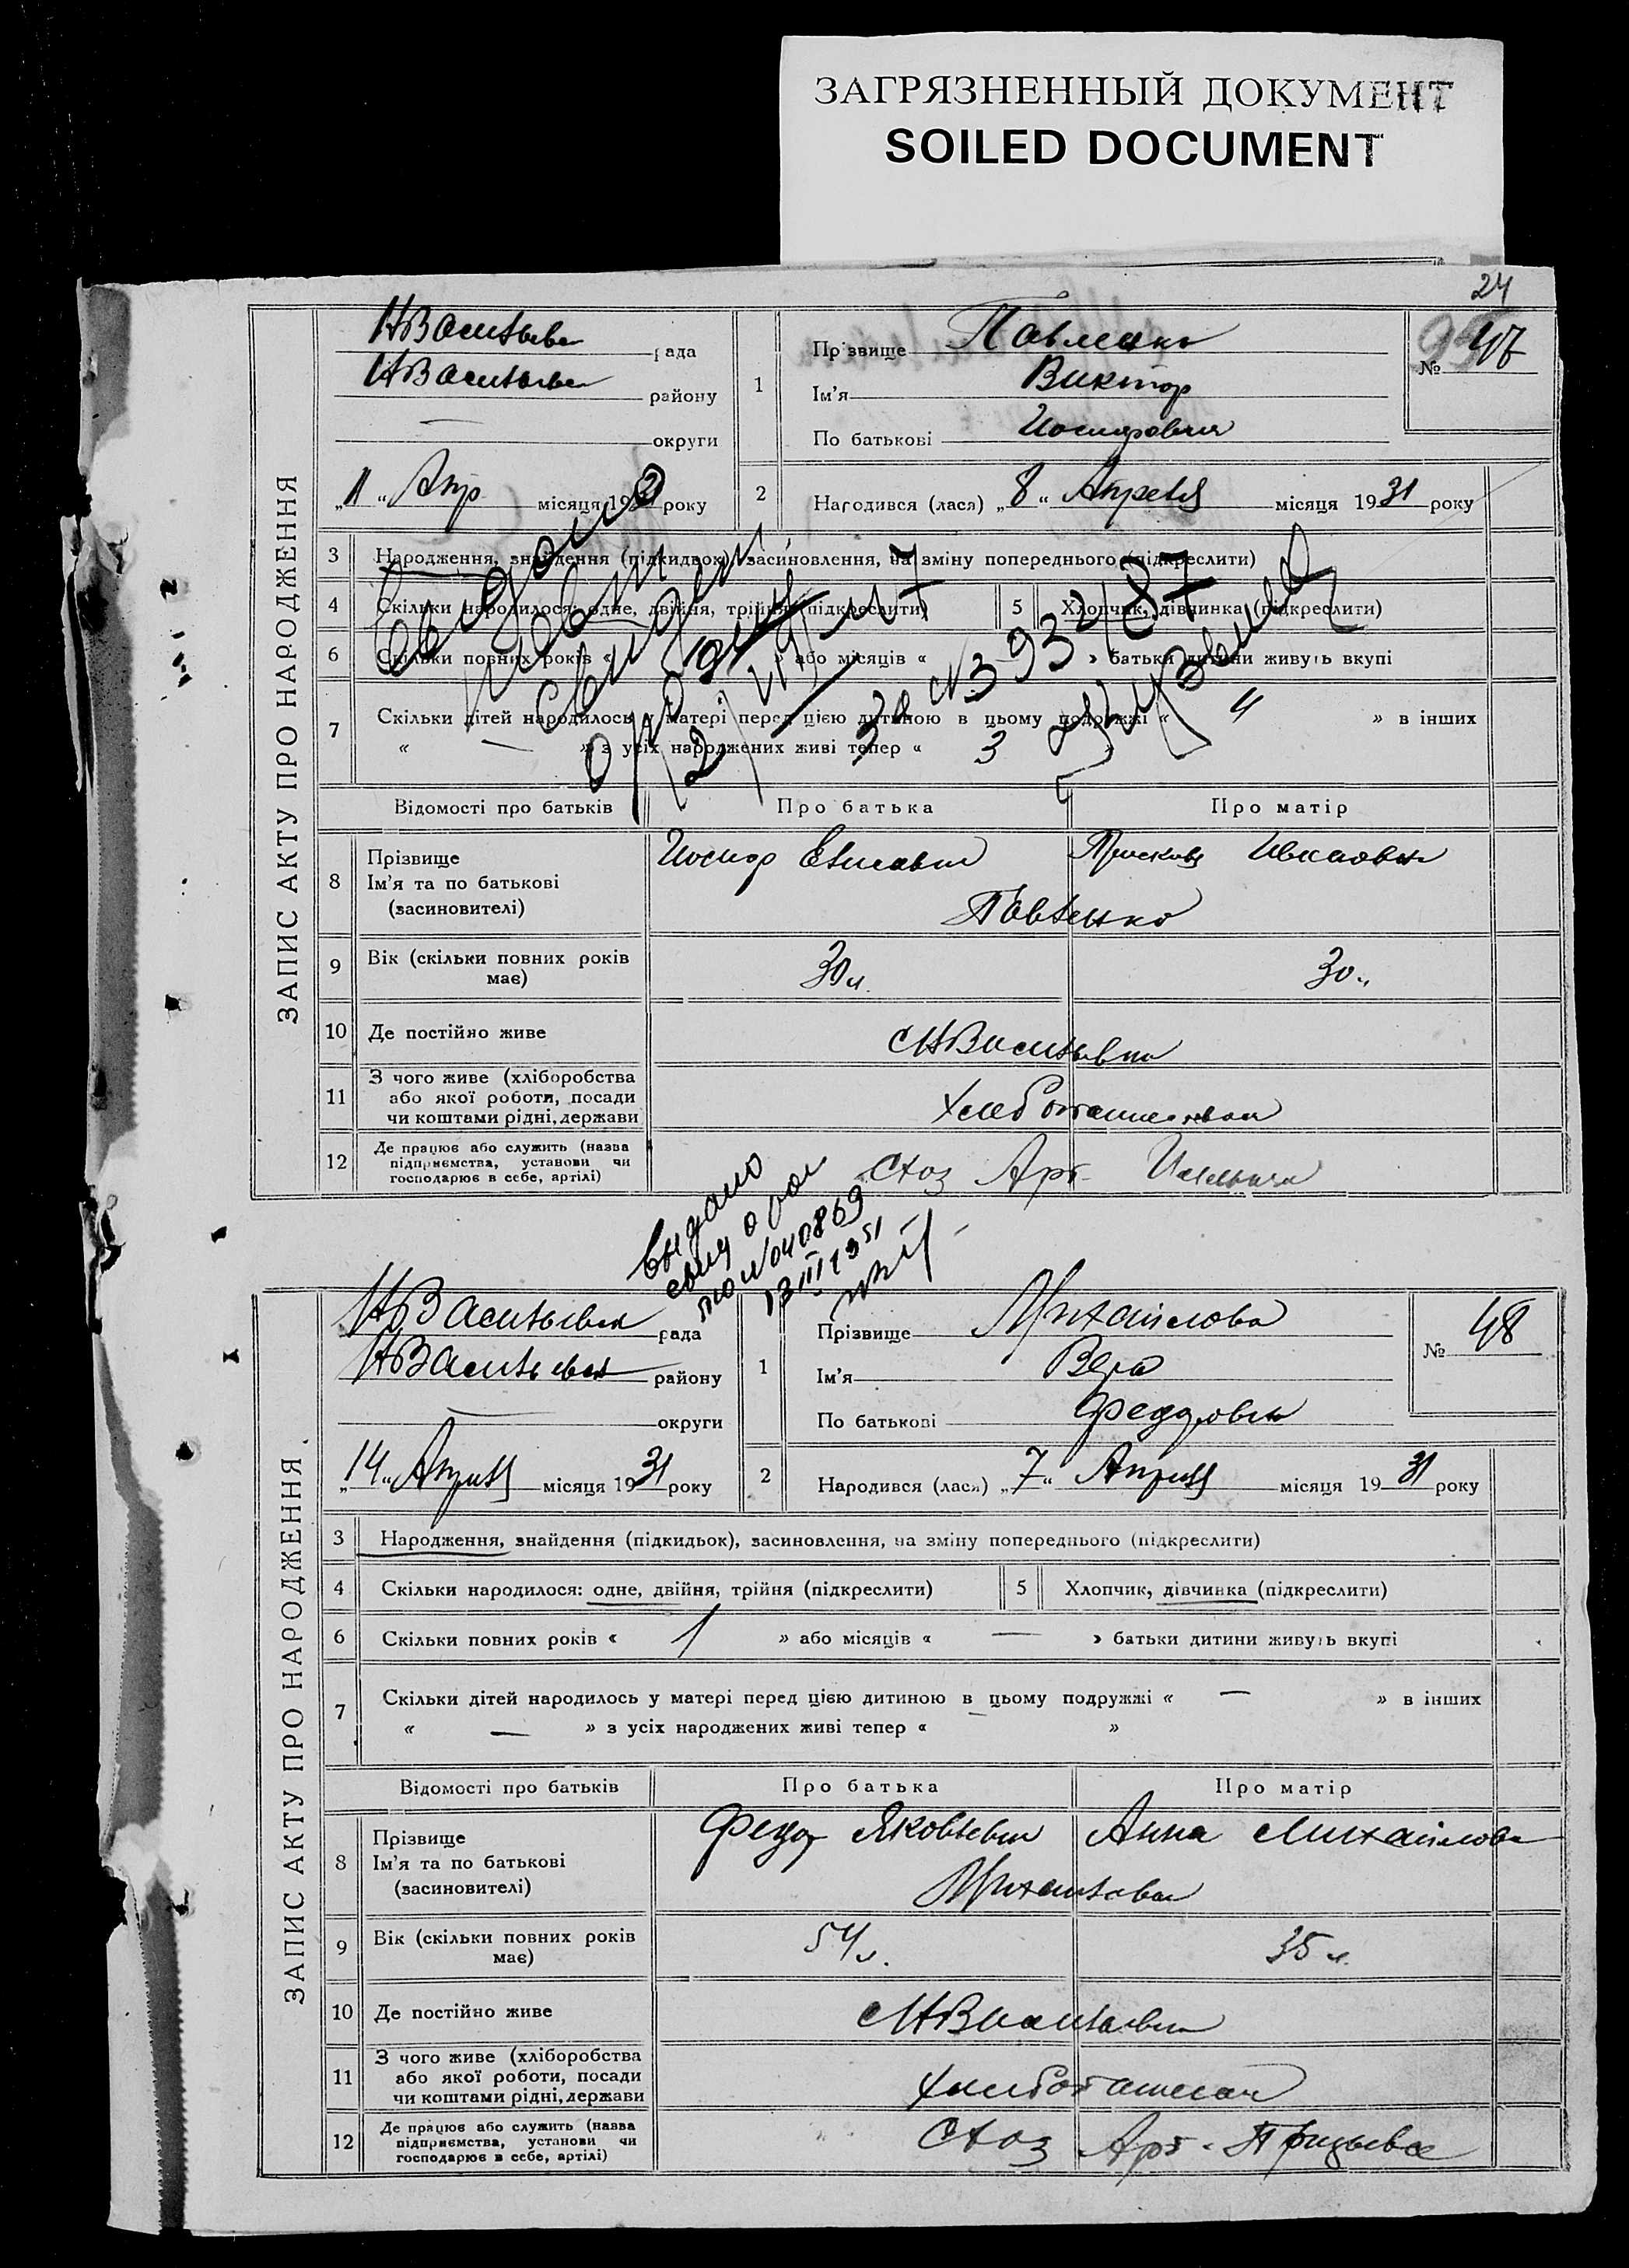 ЗАГРЯЗНЕННЫЙ ДОКУМЕНТ
SOILED DOCUMENT
24
ЗАПИС АКТУ ПРО НАРОДЖЕННЯ
НВасильев рада
НВасильев району
— округи
„11“ Апр місяця 1931 року
1
Прізвище Павленко
Ім'я Виктор
По батькові Иосифович
№ 47
2 Народився (лася) „8“ Апреля місяця 1931 року
3 Народження, знайдення (підкидьок), засиновлення, на зміну попереднього (підкреслити)
4 Скільки народилося: одне, двійня, трійня (підкреслити)
5 Хлопчик, дівчинка (підкреслити)
6 Скільки повних років « 10 » або місяців « » батьки дитини живуть вкупі
7 Скільки дітей народилось у матері перед цією дитиною в цьому подружжі « 4 » в інших
« — » з усіх народжених живі тепер « 3 »
Відомості про батьків Про батька Про матір
8 Прізвище
Ім'я та по батькові
(засиновителі)
Иосиф Ивановна
Павленко
9 Вік (скільки повних років
має)
30 л. 30 л
10 Де постійно живе
11 З чого живе (хліборобства
або якої роботи, посади
чи коштами рідні, держави
12 Де працює або служить (назва
підприємства, установи чи
господарює в себе, артілі)
Схоз Арт.
Выдано
свид о рож
по № 040869
13 III 1951
ЗАПИС АКТУ ПРО НАРОДЖЕННЯ
НВасильевка рада
НВасильевка району
— округи
„14“ Апреля місяця 1931 року
1
Прізвище Михайлова
Ім'я Вера
По батькові Федоровна
№ 48
2 Народився (лася) „7“ Апреля місяця 1931 року
3 Народження, знайдення (підкидьок), засиновлення, на зміну попереднього (підкреслити)
4 Скільки народилося: одне, двійня, трійня (підкреслити)
5 Хлопчик, дівчинка (підкреслити)
6 Скільки повних років « 1 » або місяців « — » батьки дитини живуть вкупі
7 Скільки дітей народилось у матері перед цією дитиною в цьому подружжі « — » в інших
« — » з усіх народжених живі тепер « »
Відомості про батьків Про батька Про матір
8 Прізвище
Ім'я та по батькові
(засиновителі)
Федор Яковлевич Анна Михайлова
Михайлова
9 Вік (скільки повних років
має)
54 л. 35 л.
10 Де постійно живе
11 З чого живе (хліборобства
або якої роботи, посади
чи коштами рідні, держави
12 Де працює або служить (назва
підприємства, установи чи
господарює в себе, артілі)
Схоз Арт.